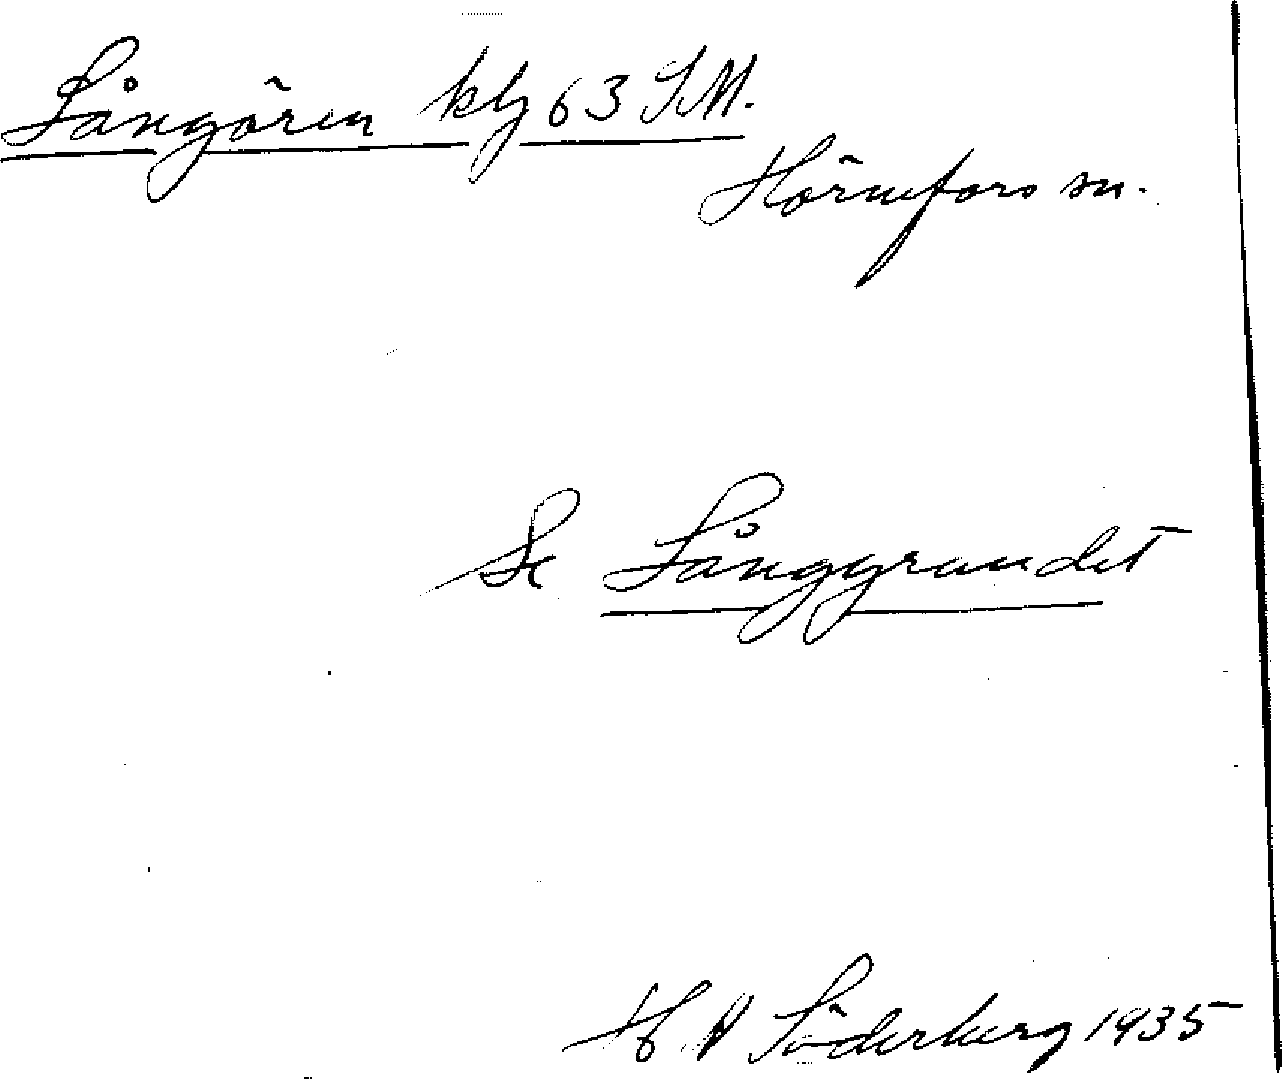 Långören klj 63 SM.
Hörnefors sn.
Se Långgrundet
H A Söderberg 1935